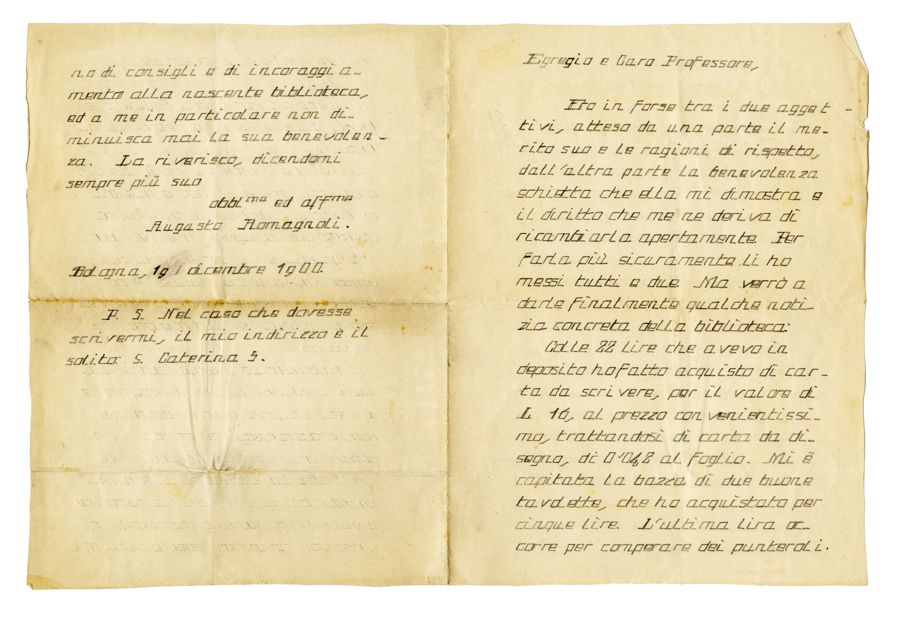 no di consigli e di incoraggia-
mento alla nascente biblioteca,
ed a me in particolare non di-
minuisca mai la sua benevolen-
za. La riverisco, dicendomi
sempre più suo
obbl.mo ed aff.mo
Augusto Romagnoli.
Bologna, dicembre 1900.
P. S. Nel caso che dovesse
scrivermi, il mio indirizzo è il
solito: S. Caterina 5.
Egregio e Caro Professore,
Sto in forse tra i due agget-
tivi, atteso da una parte il me-
rito suo e le ragioni di rispetto,
dall'altra parte la benevolenza
schietta che ella mi dimostra e
il diritto che me ne deriva di
ricambiarla apertamente. Per
farla più sicuramente li ho
messi tutti e due. Ma verrò a
darle finalmente qualche noti-
zia concreta della biblioteca:
Colle 22 lire che avevo in
deposito ho fatto acquisto di car-
ta da scrivere, per il valore di
L. 16, al prezzo convenientissi-
mo, trattandosi di carta da di-
segno, di al foglio. Mi è
capitata la bazza di due buone
tavolette, che ho acquistato per
cinque lire. L'ultima lira oc-
corre per comperare dei punteroli.